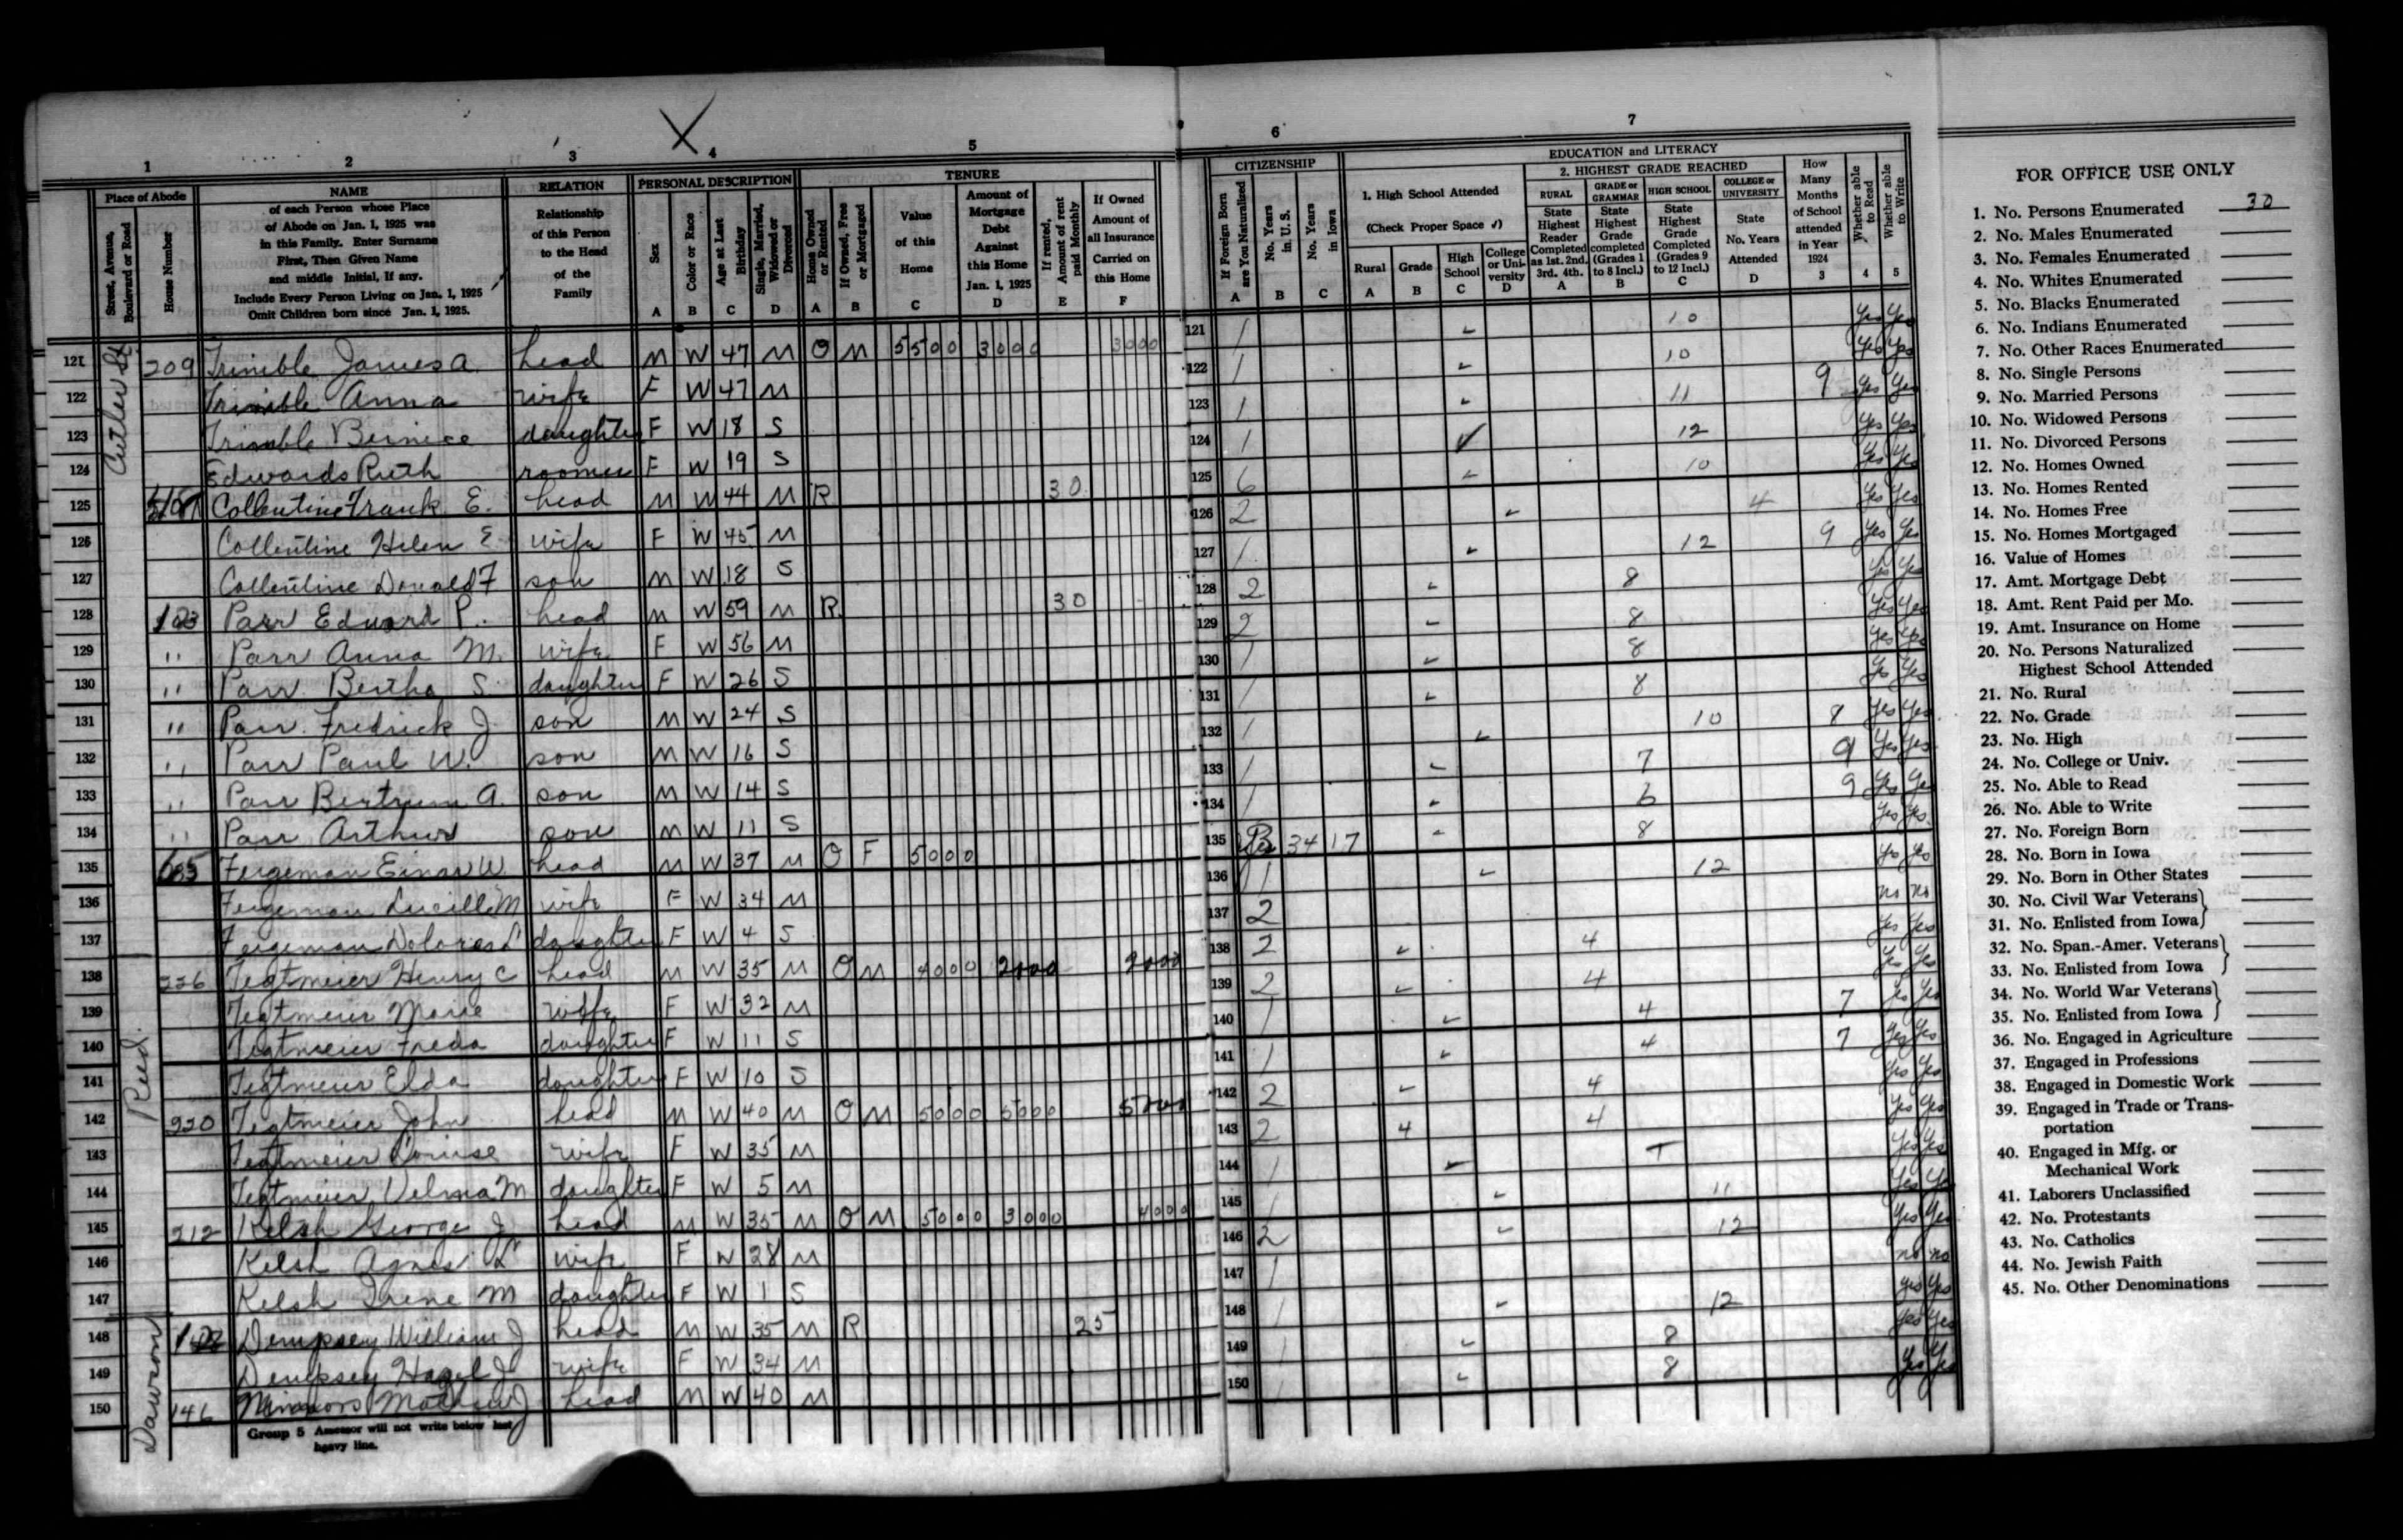 1 2 3 4 5
Place of Abode NAME RELATION PERSONAL DESCRIPTION TENURE
Street, Avenue, Boulevard or Road
House Number
of each Person whose Place
of Abode on Jan. 1, 1925 was
in this Family. Enter Surname
First, Then Given Name
and middle Initial, If any.
Include Every Person Living on Jan. 1, 1925
Omit Children born since Jan. 1, 1925.
Relationship
of this Person
to the Head
of the
Family
Sex A
Color or Race B
Age at Last Birthday C
Single, Married, Widowed or Divorced D
Home Owned or Rented A
If Owned, Free or Mortgaged B
Value of this Home C
Amount of Mortgage Debt Against this Home Jan. 1, 1925 D
If rented, Amount of rent paid Monthly E
If Owned Amount of all Insurance Carried on this Home F
Cutler St
121 209 Trimble James A. head M W 47 M O M 5500 3000 3000
122 Trimble Anna wife F W 47 M
123 Trimble Bernice daughter F W 18 S
124 Edwards Ruth roomer F W 19 S
125 Collentine Frank E. head M W 44 M R 30
126 Collentine Helen E wife F W 45 M
127 Collentine Donald F son M W 18 S
128 Parr Edward P. head M W 59 M R 30
129 " Parr Anna M. wife F W 56 M
130 " Parr Bertha S. daughter F W 26 S
131 " Parr Fredrick J son M W 24 S
132 " Parr Paul W. son M W 16 S
133 " Parr Bertrum A. son M W 14 S
134 " Parr Arthur son M W 11 S
135 Fergeman Einar W head M W 37 M O F 5000
136 Fergeman Lucille M wife F W 34 M
137 Fergeman Dolores daughter F W 4 S
Reed
138 236 Tegtmeier Henry C head M W 35 M O M 4000 2000 2000
139 Tegtmeier Marie wife F W 32 M
140 Tegtmeier Freda daughter F W 11 S
141 Tegtmeier Elda daughter F W 10 S
142 220 Tegtmeier John head M W 40 M O M 5000 5000
143 Tegtmeier Louise wife F W 35 M
144 Tegtmeier Velma M daughter F W 5 M
145 212 Kelsh George J head M W 35 M O M 5000 3000 4000
146 Kelsh Agnes L wife F W 28 M
147 Kelsh Irene M daughter F W 1 S
Dawson
148 Dempsey William J head M W 35 M R 25
149 Dempsey Hazel J wife F W 34 M
150 146 head M W 40 M
Group 5 Assessor will not write below last
heavy line.
6 7
CITIZENSHIP EDUCATION and LITERACY
If Foreign Born are You Naturalized A
No. Years in U. S. B
No. Years in Iowa C
1. High School Attended
(Check Proper Space ✓)
Rural A
Grade B
High School C
College or University D
2. HIGHEST GRADE REACHED
RURAL State Highest Reader Completed as 1st. 2nd. 3rd. 4th. A
GRADE or GRAMMAR State Highest Grade completed (Grades 1 to 8 Incl.) B
HIGH SCHOOL State Highest Grade Completed (Grades 9 to 12 Incl.) C
COLLEGE or UNIVERSITY State No. Years Attended D
How Many Months of School attended in Year 1924 3
Whether able to Read 4
Whether able to Write 5
121 1 ✓ 10 Yes Yes
122 1 ✓ 10 Yes Yes
123 1 ✓ 11 9 Yes Yes
124 1 ✓ 12 Yes Yes
125 6 ✓ 10 Yes Yes
126 2 ✓ 4 Yes Yes
127 1 ✓ 12 9 Yes Yes
128 2 ✓ 8 Yes Yes
129 2 ✓ 8 Yes Yes
130 1 ✓ 8 Yes Yes
131 1 ✓ 8 Yes Yes
132 1 ✓ 10 8 Yes Yes
133 1 ✓ 7 9 Yes Yes
134 1 ✓ 6 9 Yes Yes
135 34 17 ✓ 8 Yes Yes
136 1 ✓ 12 Yes Yes
137 2 no no
138 2 ✓ 4 Yes Yes
139 2 ✓ 4 Yes Yes
140 1 ✓ 4 7 Yes Yes
141 1 ✓ 4 7 Yes Yes
142 2 ✓ 4 Yes Yes
143 2 4 4 Yes Yes
144 1 ✓ Yes Yes
145 1 ✓ 11 Yes Yes
146 2 ✓ 12 Yes Yes
147 1 no no
148 1 ✓ 12 Yes Yes
149 1 ✓ 8 Yes Yes
150 1 ✓ 8 Yes Yes
FOR OFFICE USE ONLY
1. No. Persons Enumerated 30
2. No. Males Enumerated
3. No. Females Enumerated
4. No. Whites Enumerated
5. No. Blacks Enumerated
6. No. Indians Enumerated
7. No. Other Races Enumerated
8. No. Single Persons
9. No. Married Persons
10. No. Widowed Persons
11. No. Divorced Persons
12. No. Homes Owned
13. No. Homes Rented
14. No. Homes Free
15. No. Homes Mortgaged
16. Value of Homes
17. Amt. Mortgage Debt
18. Amt. Rent Paid per Mo.
19. Amt. Insurance on Home
20. No. Persons Naturalized
Highest School Attended
21. No. Rural
22. No. Grade
23. No. High
24. No. College or Univ.
25. No. Able to Read
26. No. Able to Write
27. No. Foreign Born
28. No. Born in Iowa
29. No. Born in Other States
30. No. Civil War Veterans
31. No. Enlisted from Iowa
32. No. Span.-Amer. Veterans
33. No. Enlisted from Iowa
34. No. World War Veterans
35. No. Enlisted from Iowa
36. No. Engaged in Agriculture
37. Engaged in Professions
38. Engaged in Domestic Work
39. Engaged in Trade or Trans-
portation
40. Engaged in Mfg. or
Mechanical Work
41. Laborers Unclassified
42. No. Protestants
43. No. Catholics
44. No. Jewish Faith
45. No. Other Denominations